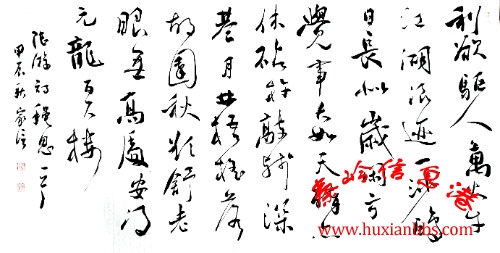 利欲驱人万火牛
江湖浪迹一沙鸥
日长似岁闲方
觉事大如天醉亦
休砧杵敲残深
巷月井梧摇落
故园秋欲舒老
眼无高处安得
元龙百尺楼
陆游诗秋思一首
甲辰秋
www.huxianbbs.com